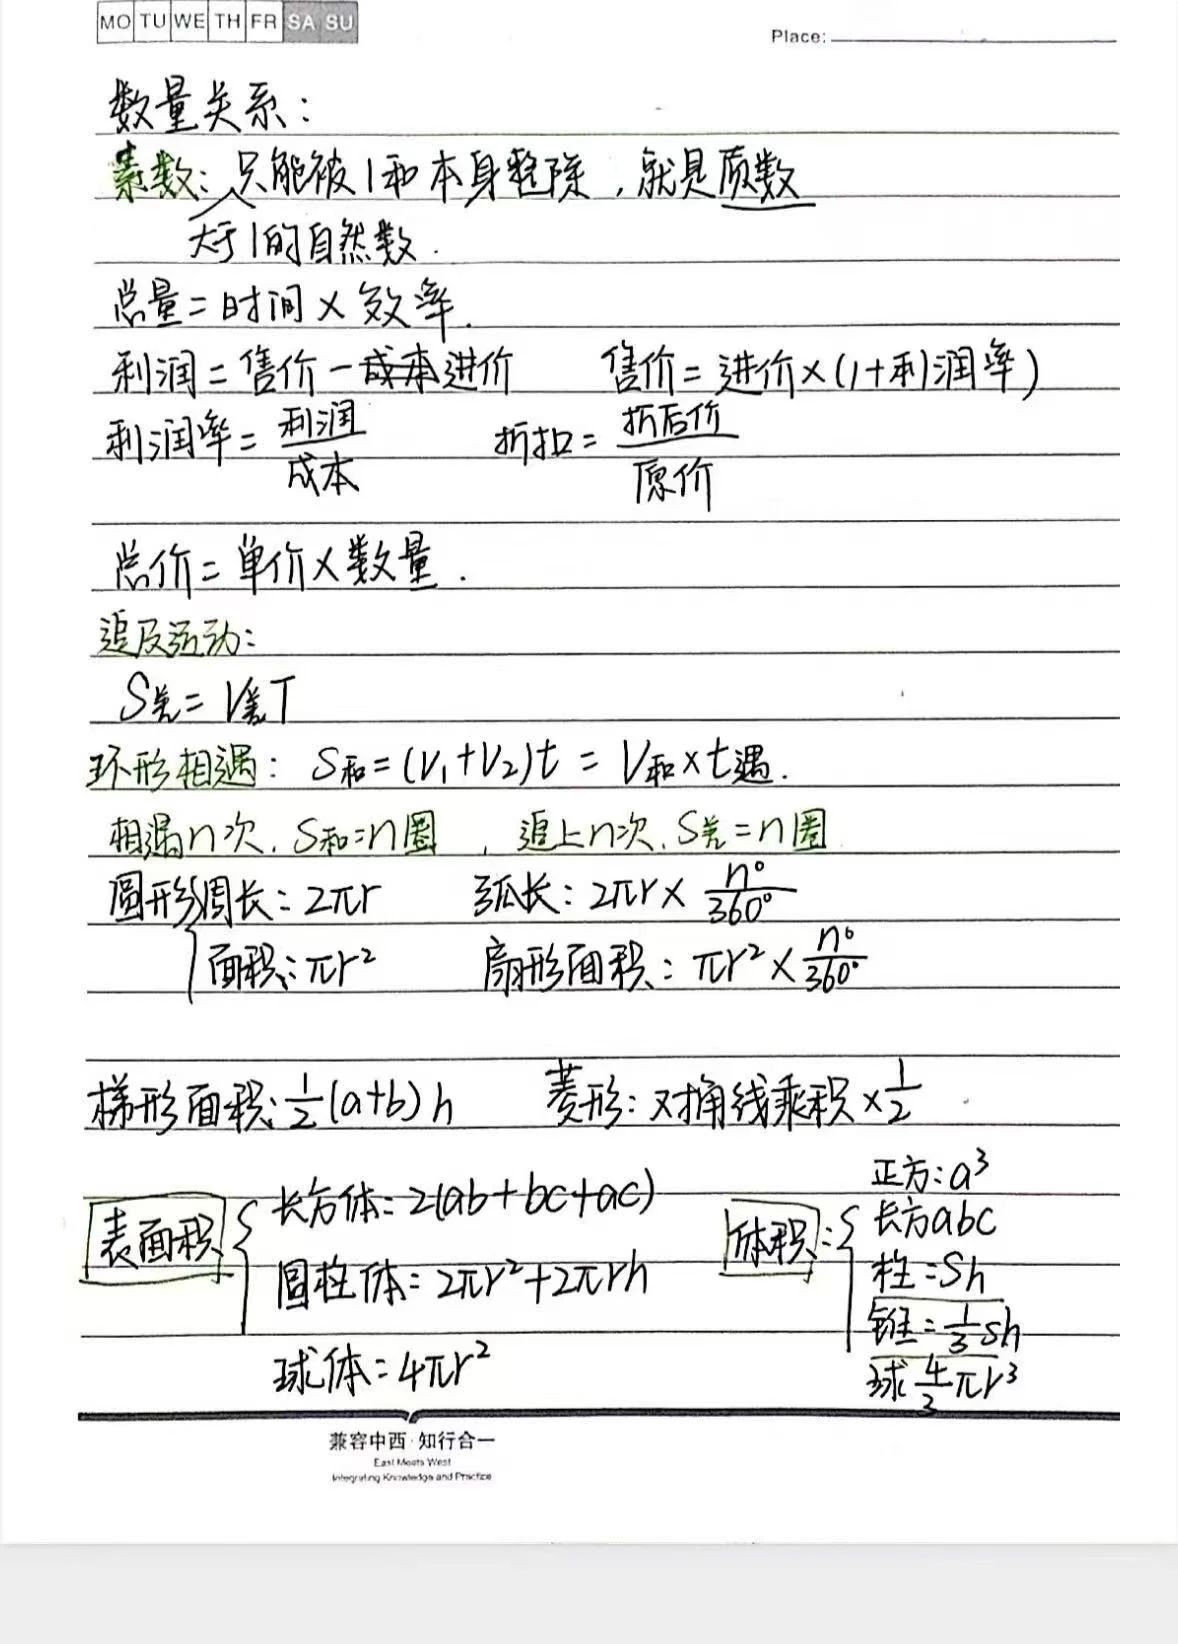 MO TU WE TH FR SA SU
Place:
数量关系：
素数：只能被1和本身整除，就是质数
大于1的自然数.
总量=时间×效率.
利润=售价-成本进价 售价=进价×(1+利润率)
利润率=利润/成本 折扣=折后价/原价
总价=单价×数量.
追及运动：
S差=V差T
环形相遇：S和=(V₁+V₂)t=V和×t遇.
相遇n次,S和=n圈,追上n次,S差=n圈
圆形{周长:2πr 弧长:2πr×n°/360°
面积:πr² 扇形面积:πr²×n°/360°
梯形面积:1/2(a+b)h 菱形:对角线乘积×1/2
表面积{长方体:2(ab+bc+ac)
圆柱体:2πr²+2πrh
球体:4πr²
体积:{正方:a³
长方abc
柱=Sh
锥=1/3sh
球4/3πr³
兼容中西·知行合一
East Meets West
Integrating Knowledge and Practice